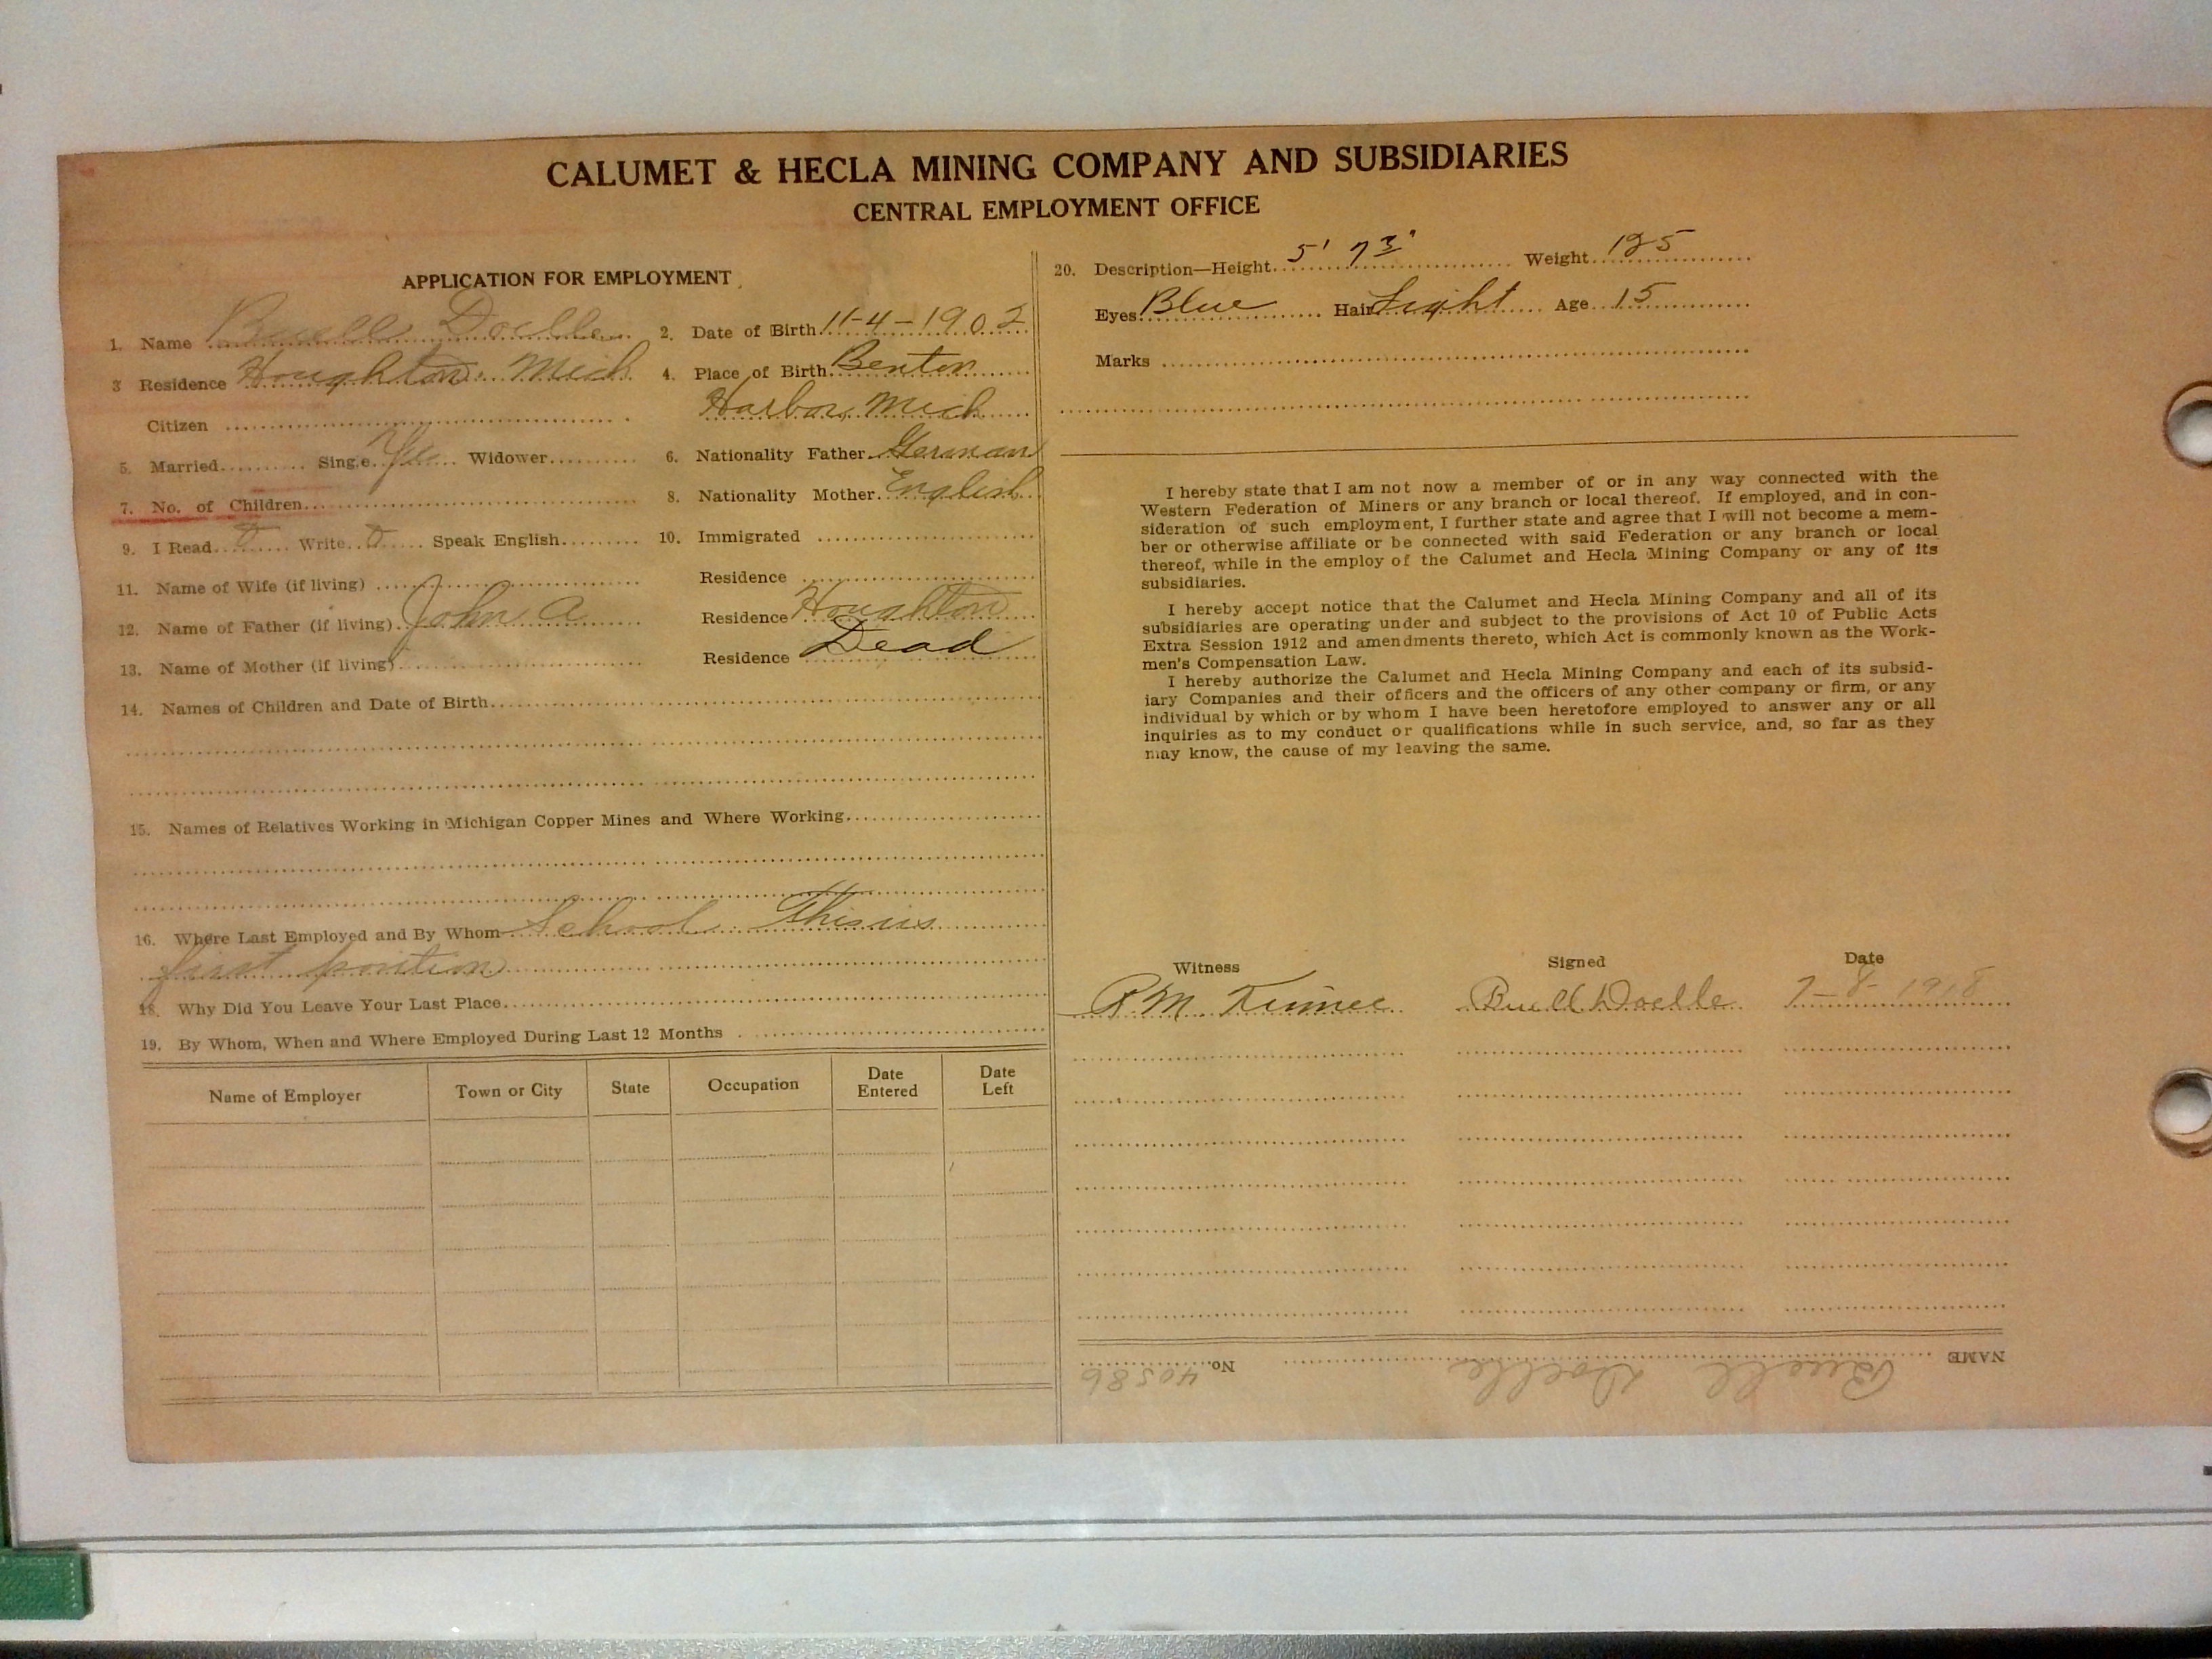 CALUMET & HECLA MINING COMPANY AND SUBSIDIARIES
CENTRAL EMPLOYMENT OFFICE
APPLICATION FOR EMPLOYMENT
1. Name Buell Doelle
2. Date of Birth 11-4-1902
3 Residence Houghton. Mich
4. Place of Birth Benton
Harbor, Mich
Citizen
5. Married Single Yes Widower
6. Nationality Father German
7. No. of Children
8. Nationality Mother English
9. I Read Write Speak English
10. Immigrated
11. Name of Wife (if living)
Residence
12. Name of Father (if living) John A
Residence Houghton
13. Name of Mother (if living)
Residence Dead
14. Names of Children and Date of Birth
15. Names of Relatives Working in Michigan Copper Mines and Where Working
16. Where Last Employed and By Whom School This is
first position
18. Why Did You Leave Your Last Place
19. By Whom, When and Where Employed During Last 12 Months
Name of Employer Town or City State Occupation Date Entered Date Left
20. Description—Height 5' 7 Weight 125
Eyes Blue Hair Light Age 15
Marks
I hereby state that I am not now a member of or in any way connected with the
Western Federation of Miners or any branch or local thereof. If employed, and in con-
sideration of such employment, I further state and agree that I will not become a mem-
ber or otherwise affiliate or be connected with said Federation or any branch or local
thereof, while in the employ of the Calumet and Hecla Mining Company or any of its
subsidiaries.
I hereby accept notice that the Calumet and Hecla Mining Company and all of its
subsidiaries are operating under and subject to the provisions of Act 10 of Public Acts
Extra Session 1912 and amendments thereto, which Act is commonly known as the Work-
men's Compensation Law.
I hereby authorize the Calumet and Hecla Mining Company and each of its subsid-
iary Companies and their officers and the officers of any other company or firm, or any
individual by which or by whom I have been heretofore employed to answer any or all
inquiries as to my conduct or qualifications while in such service, and, so far as they
may know, the cause of my leaving the same.
Witness Signed Date
R M. Buell Doelle 7-8-1918
NAME Buell Doelle No. 40586